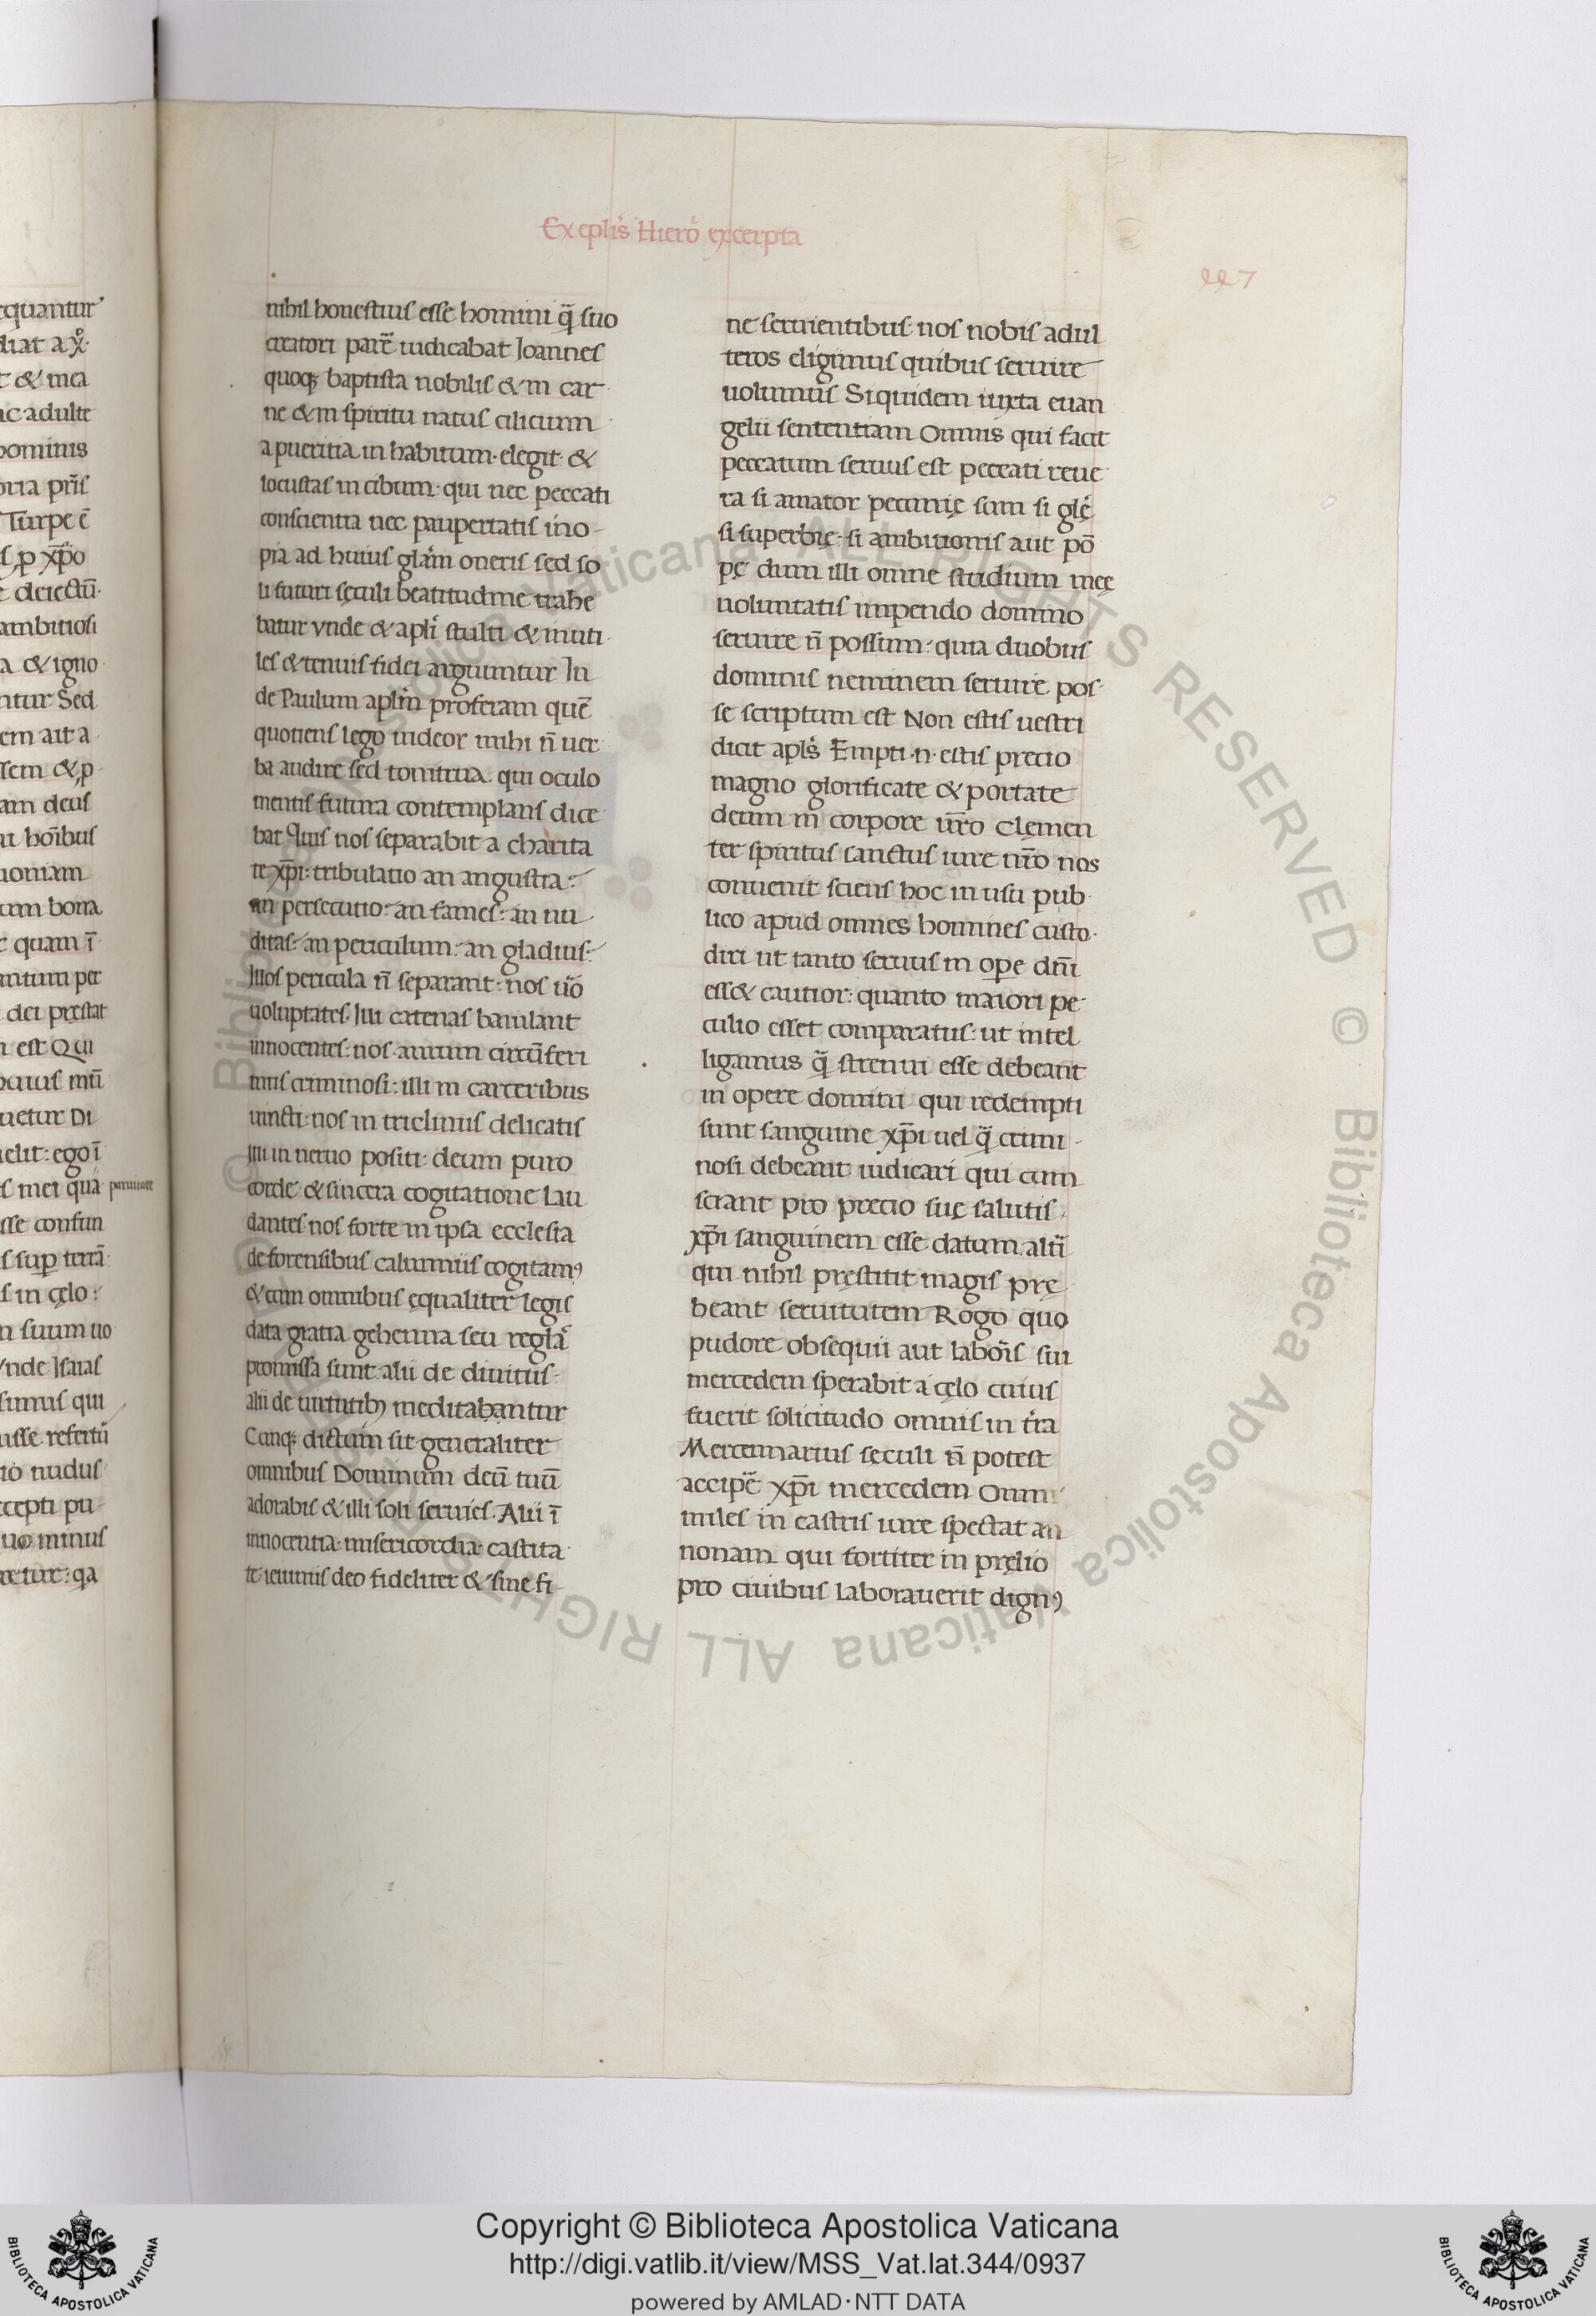 Ex eplis̃ Hierõ excerpta
447
equantur
diat a xp̃o
t & mea
ac adulte
pominis
oria pr̃is
Turpe ẽ
s, p xp̃o
e deiectũ
ambitiosi
a & igno
ntur Sed
em ait a
ssem & p
am deus
ut hoĩbus
uoniam
tum bona
c quam ĩ
antum per
dei prestat
n est Qui
ocius mũ
uetur Di
elit: ego ĩ
s mei quã
sse confun
s sup terrã
s in cęlo:
n suum uo
Vnde Isaias
sumus qui
uisse refertũ
io nudus
ccepti pu-
uo minus
retur: qa
nihil honestius esse homini q̃ suo
creatori parẽ iudicabat Joannes
quoqȝ baptista nobilis & in car
ne & in spiritu natus cilicium
a pueritia in habitum elegit &
locustas in cibum qui nec peccati
conscientia nec paupertatis ino-
pia ad huius glãm oneris sed so
li futuri sęculi beatitudine trahe
batur vnde & apl̃i stulti & inuti
les & tenuis fidei arguuntur In
de Paulum apl̃m proferam quẽ
quotiens lego uideor mihi ñ uer
ba audire sed tonitrua qui oculo
mentis futura contemplans dice
bat Quis nos separabit a charita
te xp̃i: tribulatio an angustia:
an persecutio: an fames: an nu
ditas: an periculum: an gladius:
Illos pericula ñ separant: nos uõ
uoluptates. Illi catenas baiulant
innocentes: nos aurum circũferi
mus criminosi: illi in carceribus
uincti: nos in tricliniis delicatis
Illi in neruo positi: deum puro
corde & sincera cogitatione lau
dantes nos forte in ipsa ecclesia
de forensibus calumniis cogitamꝰ
& cum omnibus ęqualiter legis
data gratia gehenna seu reglã
promissa sunt alii de diuitiis
alii de uirtutibȝ meditabantur
Cunqȝ dictum sit generaliter
omnibus Dominum deũ tuũ
adorabis & illi soli seruies. Alii ĩ
innocentia misericordia castita
te ieiuniis deo fideliter & sine fi-
ne seruientibus nos nobis adul
teros eligimus quibus seruire
uolumus Siquidem iuxta euan
gelii sententiam Omnis qui facit
peccatum seruus est peccati reue
ra si amator pecunię sum si glę
si superbię si ambitionis aut põ
pę dum illi omne studium meę
uoluntatis impendo domino
seruire ñ possum: quia duobus
dominis neminem seruire pos
se scriptum est Non estis uestri
dicit apls̃ Empti .n. estis precio
magno glorificate & portate
deum in corpore ur̃o Clemen
ter spiritus sanctus iure nr̃o nos
conuenit sciens hoc in usu pub
lico apud omnes homines custo
diri ut tanto seruus in opẽ dñi
ess& cautior: quanto maiori pe
culio esset comparatus: ut intel
ligamus q̃ strenui esse debeant
in opere domini qui redempti
sunt sanguine xp̃i uel q̃ crimi
nosi debeant iudicari qui cum
sciant pro precio suę salutis
xp̃i sanguinem esse datum altĩ
qui nihil pręstitit magis prę
beant seruitutem Rogo quo
pudore obsequii aut labor̃is sui
mercedem sperabit a cęlo cuius
fuerit solicitudo omnis in tr̃a
Mercennarius sęculi ñ potest
accipẽ xp̃i mercedem Omni
miles in castris iure spectat an
nonam qui fortiter in pręlio
pro ciuibus laborauerit dignꝰ
© Biblioteca Apostolica Vaticana ALL RIGHTS RESERVED © Biblioteca Apostolica Vaticana ALL RIGHTS RESERVED
Copyright © Biblioteca Apostolica Vaticana
http://digi.vatlib.it/view/MSS_Vat.lat.344/0937
powered by AMLAD·NTT DATA
BIBLIOTECA APOSTOLICA VATICANA
BIBLIOTECA APOSTOLICA VATICANA